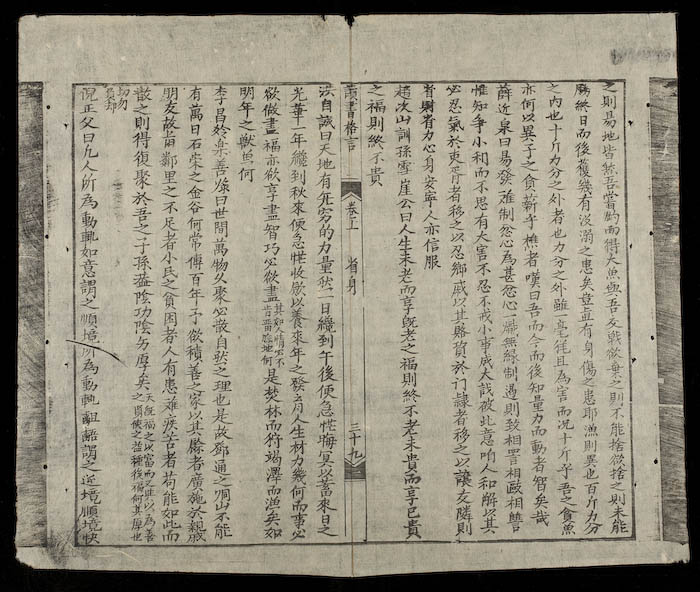 之則易地皆然吾嘗釣而得大魚與吾友戲欲棄之則不能捨欲捨之則未能
勝終日而後獲幾有沒溺之患矣豈直有身傷之患耶漁則異也百斤力分
之內也十斤力分之外者也力分之外雖一毫猶且為害而況十斤乎吾之貪魚
亦何以異子之貪薪乎樵者嘆曰吾而今而後知量力而動者智矣哉
薛近泉曰易發難制忿心為甚忿心一熾無緣制遏則致相詈相毆相讐
惟知爭小利而不思有大害不忍不戒小事成大哉彼此意咱人和解以其
必忍氣於吏胥者移之以忍鄉戚以其賂資於訂隸者移之以讓友隣則
省財省力心身安寧人亦信服
趙次山訓孫雪崖公曰人生未老而享旣老之福則終不老未貴而享已貴
之福則終不貴
讀書格言 卷上 省身 三十九
法自誠曰天地有無窮的力量然一日纔到午後便急惟晦冥以蓄來日之
光華一年纔到秋來便急惟收斂以養來年之發育人生材力幾何而事必
欲做盡福亦欲享盡智巧必欲盡其知人情必不肯留餘地何是焚林而狩竭澤而漁矣如
明年之獸魚何
李昌齡樂善錄曰世間萬物久聚必散自然之理也是故鄧通之洞山不能
有萬日石崇之金谷何常傳百年乎欲積善之家以其餘者廣施於親戚
朋友故舊鄰里之不足者小民之貧困者人有患難疾苦者苟能如此而
散之則得復聚於吾之子孫蓋陰功陰勿厚矣
倪正父曰凡人所為動輒如意謂之順境所為動輒齟齬謂之逆境順境快